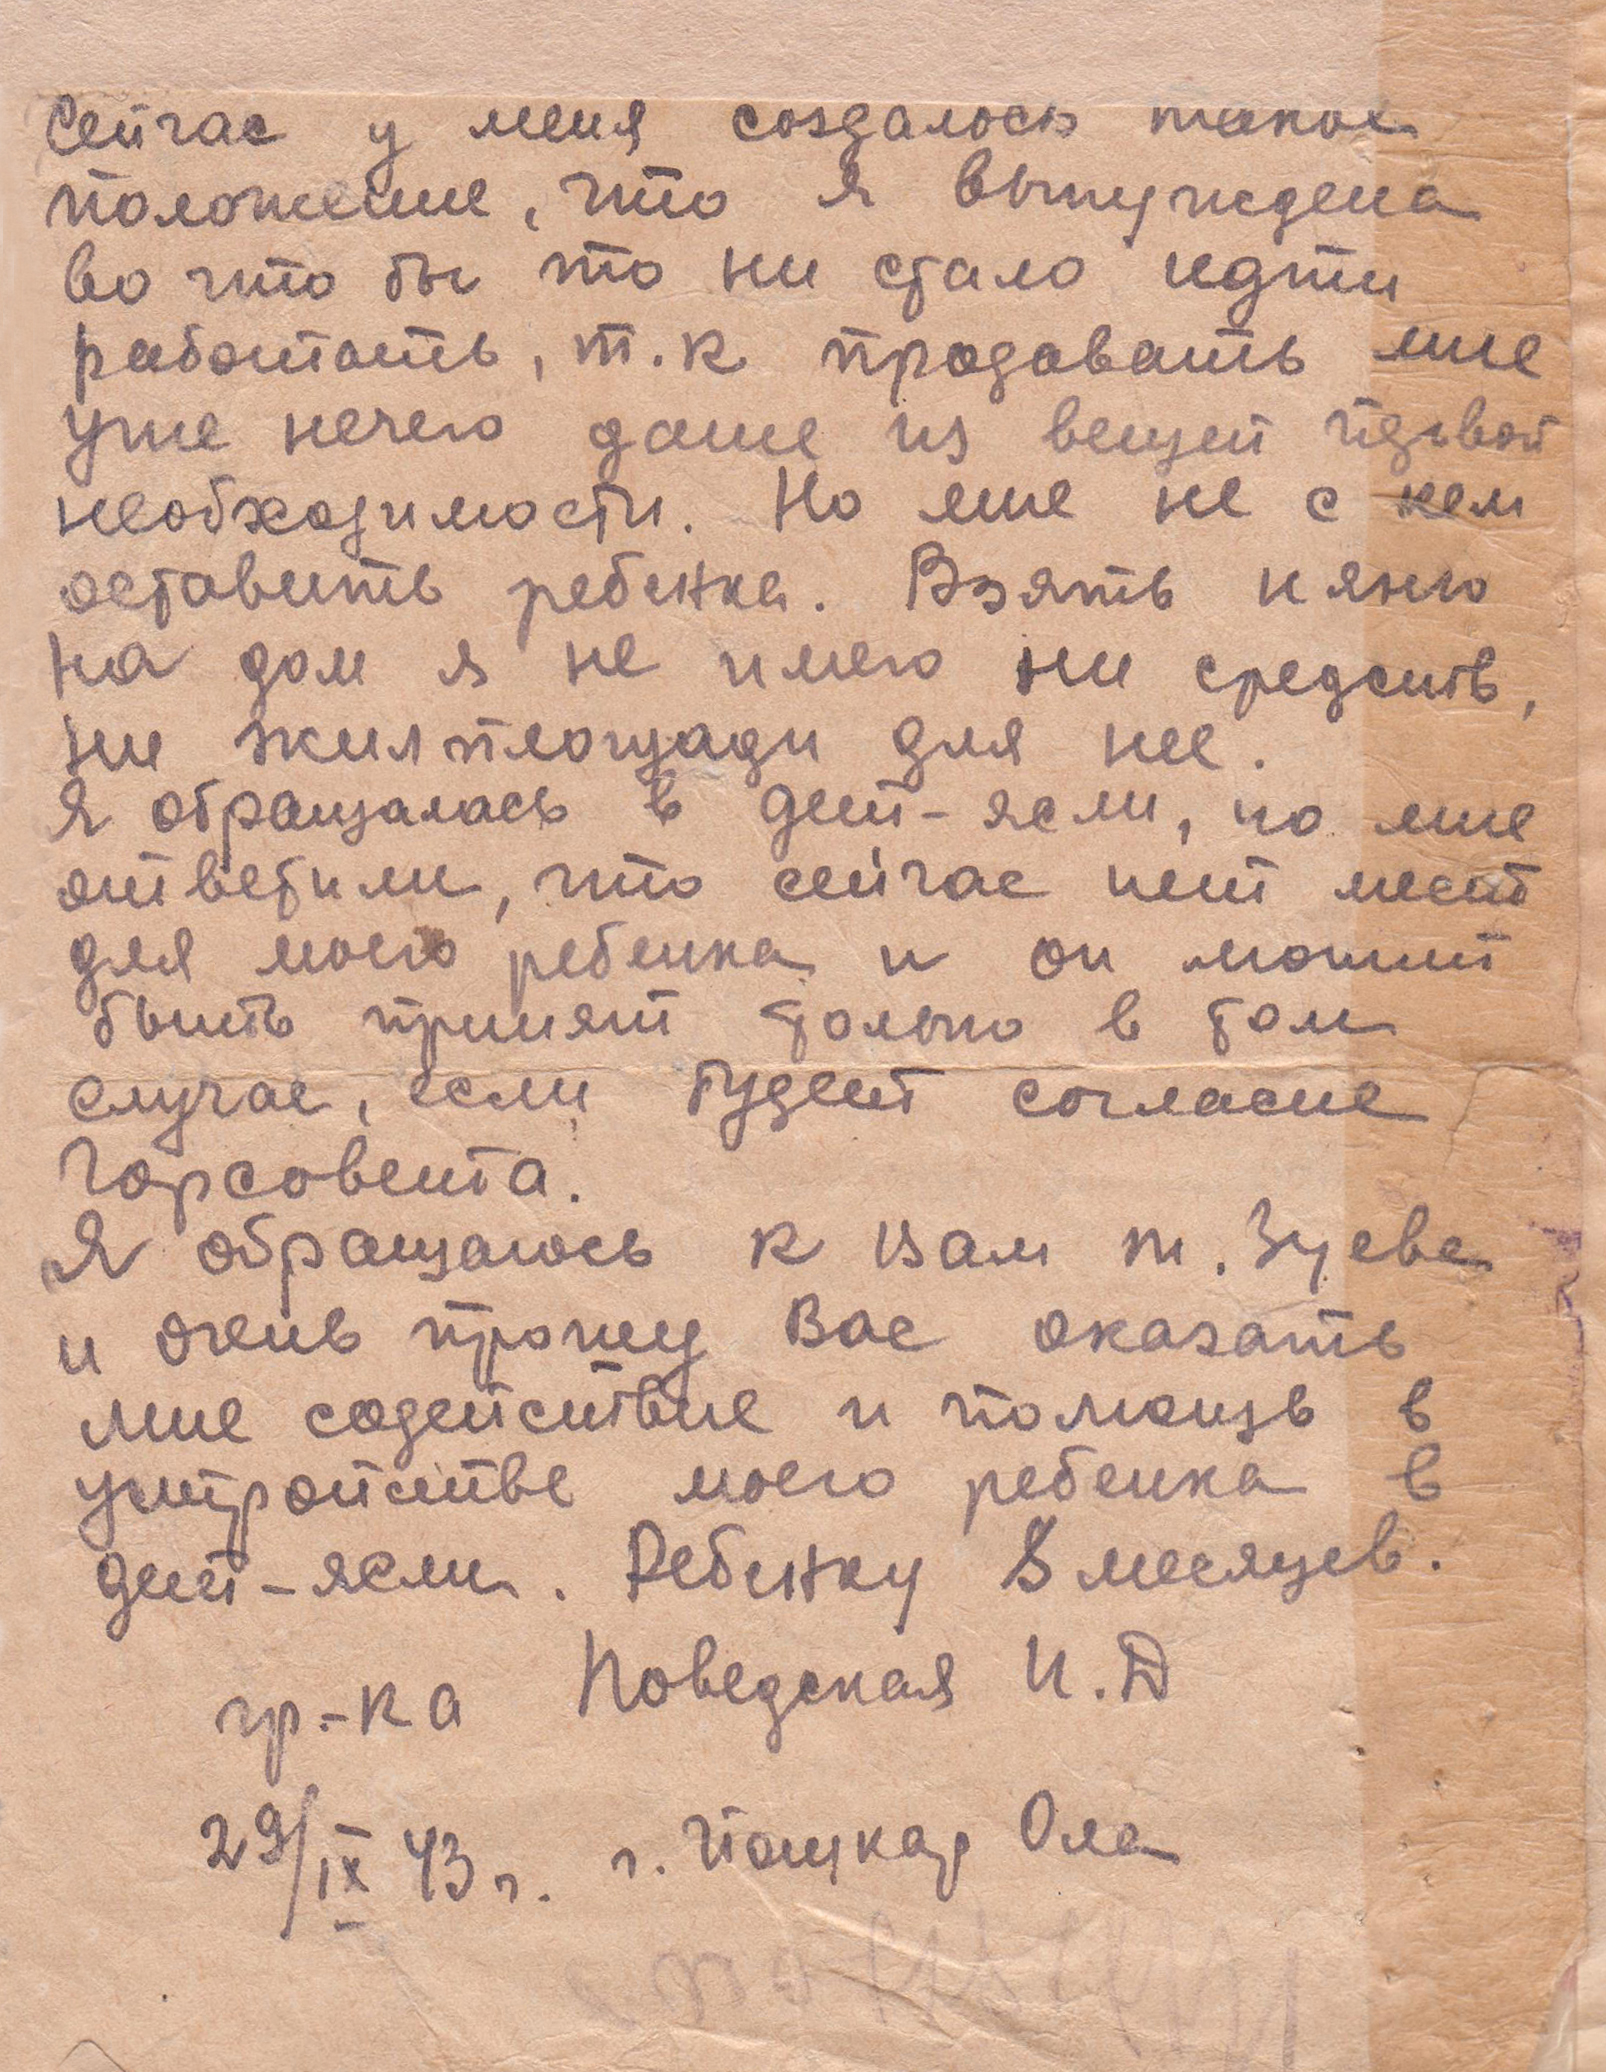 Сейчас у меня создалось такое
положение, что я вынуждена
во что бы то ни стало идти
работать, т.к продавать мне
уже нечего даже из вещей первой
необходимости. Но мне не с кем
оставить ребенка. Взять няню
на дом я не имею ни средств,
ни жилплощади для нее.
Я обращалась в дет-ясли, но мне
ответили, что сейчас нет мест
для моего ребенка и он может
быть принят только в том
случае, если будет согласие
Горсовета.
Я обращаюсь к Вам т. Зуева
и очень прошу Вас оказать
мне содействие и помощь в
устройстве моего ребенка в
дет-ясли. Ребенку 8 месяцев.
гр.-ка Поведская И.Д
29/IX 43 г. г. Йошкар Ола